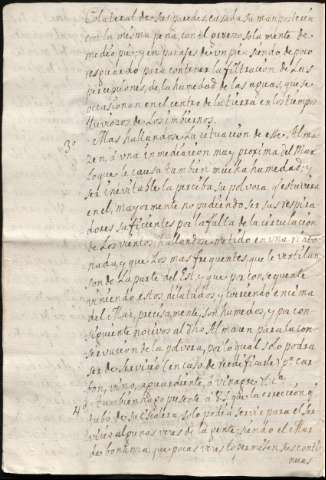 Colateral de sus paredes casaba su mamposteria
con la mesma peña, con el grueso sola mente de
medio pie, y en parajes de un pie, siendo de poco
resguardo para contener la filtracion de las
percepciones de la humedad de las aguas, que se
ocasionan en el centro de la tierra en los tiempos
lluviosos de los imbiernos.
3º Mas hallandose la cituacion de este Alma-
zen, à una inmediacion muy proxima del Mar
lo que le causa tambien mucha humedad; y
será inevitable la perciba su polvora, q. estuviera
en el, mayormente no pudiendo ser sus respira-
dores suficientes por la falta de la circulacion
de los vientos, hallandose metido en una
y que los mas frequentes que le ventilan
son de la parte del Est, y que por consequente
viniendo estos dilatados y exerciendo encima
del Mar, precisamente, son humedos, y por con-
siguiente nocivos al dho. Almazen para la con-
servacion de la polvora, por lo qual solo podra
ser de servicio (en caso de reedificarle) pª. car-
bon, vino, aguardiente, ò vinagre, &ca.
4º tambien hago presente à VS. que la ereccion, y
tubo de su Escalera, solo podra servir para el ser-
vicio algunas veces de la gente, siendo el Mar
de bonanza, que pocas veces lo permiten sus conti-
nuas